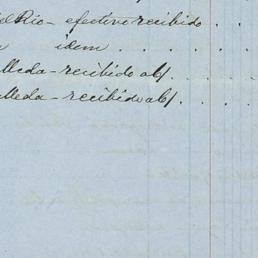 del Rio - efective recibido . .
idem . . . . .
lleda - recibido a/f . . . .
lleda - recibido a/f . . . .